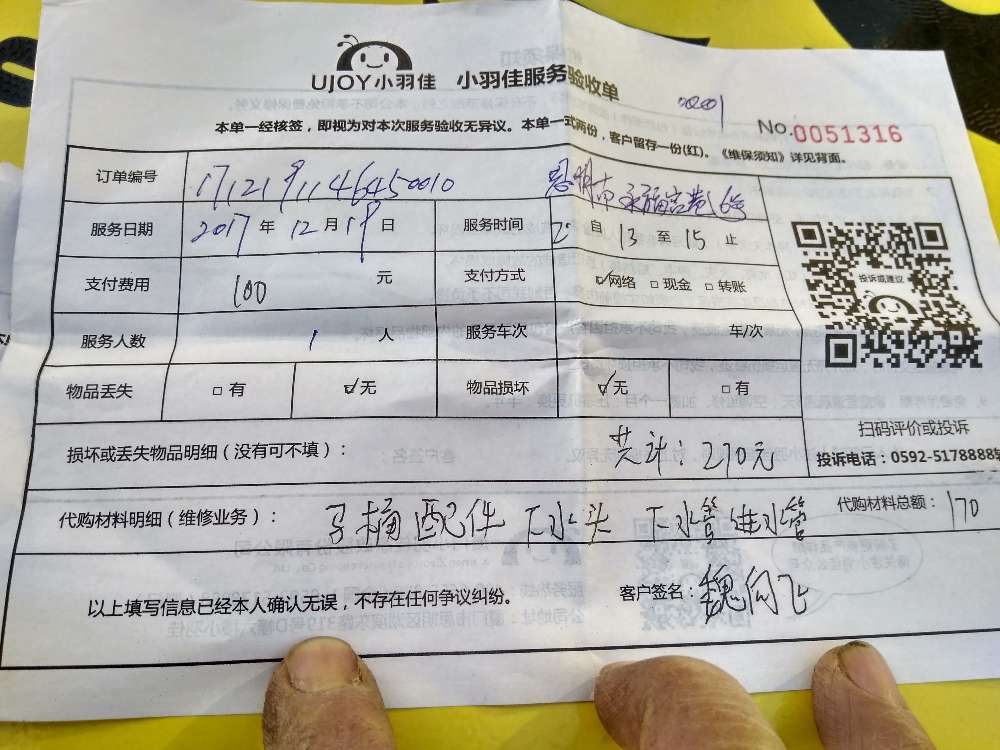 UJOY小羽佳 小羽佳服务验收单
No.0051316
本单一经核签，即视为对本次服务验收无异议。本单一式两份，客户留存一份(红)。《维保须知》详见背面。
订单编号 171219114645 0010
永福宫巷6号
服务日期 2017年12月19日 服务时间 自13至15止
支付费用 100 元 支付方式 ☑网络 □现金 □转账
投诉或建议
服务人数 1 人 服务车次 车/次
物品丢失 □有 ☑无 物品损坏 ☑无 □有
扫码评价或投诉
投诉电话：0592-5178888转
损坏或丢失物品明细（没有可不填）： 共计：270元
代购材料明细（维修业务）： 马桶配件 下水头 下水管进水管 代购材料总额：170
以上填写信息已经本人确认无误，不存在任何争议纠纷。 客户签名：魏向飞